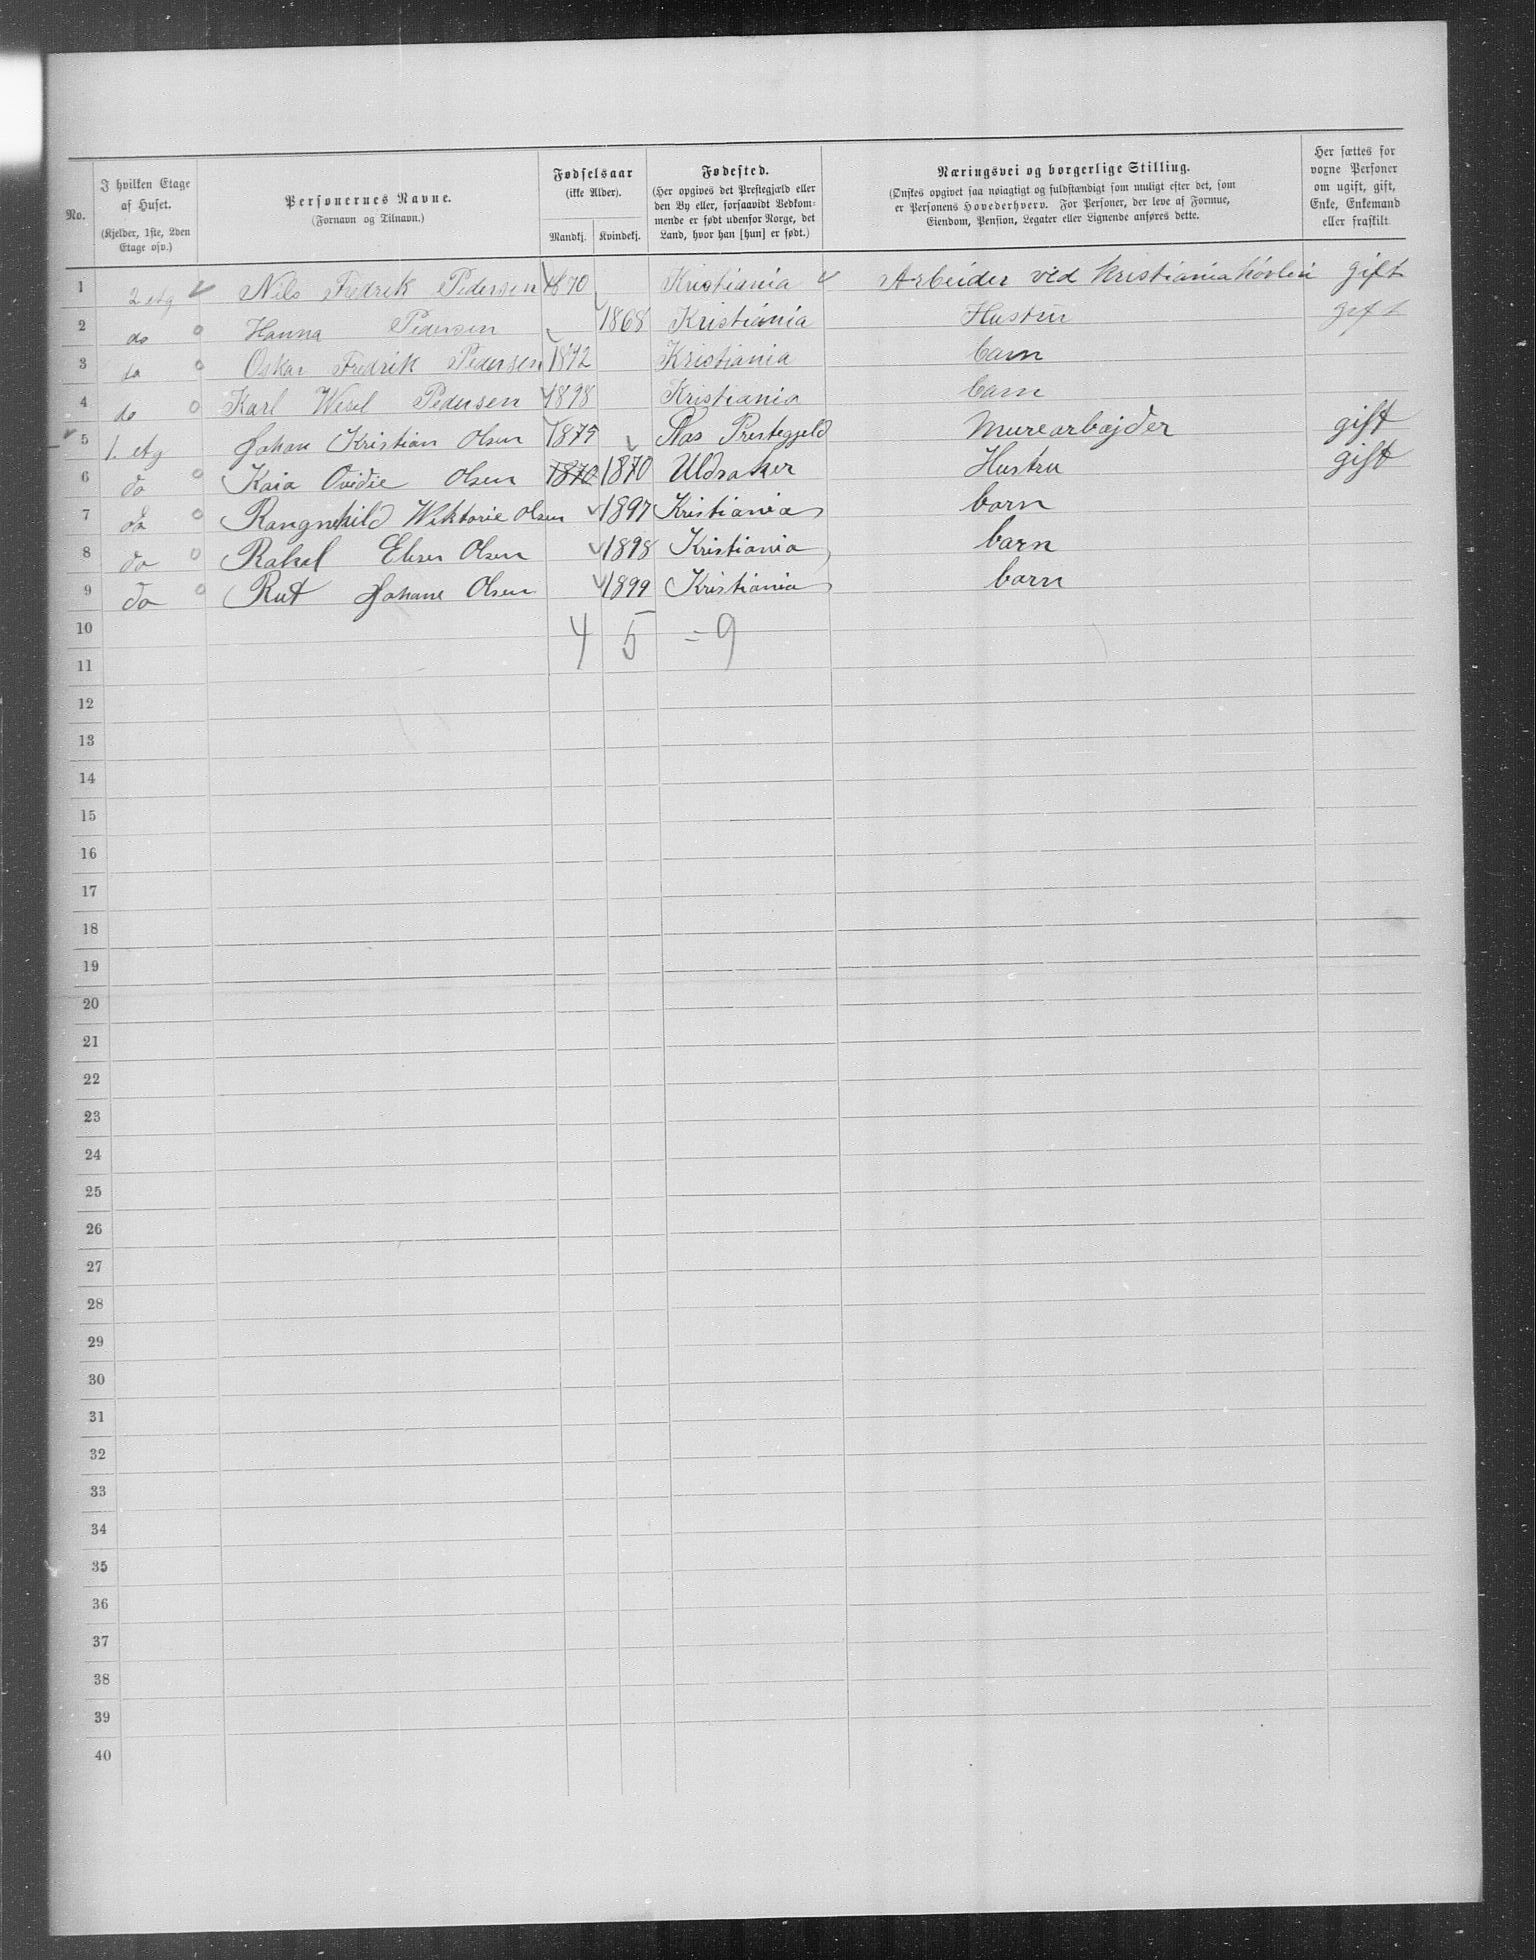 No.
I hvilken Etage
af Huset.
(Kjelder, 1ste, 2den
Etage osv.)
Personernes Navne.
(Fornavn og Tilnavn.)
Fødselsaar
(ikke Alder).
Mandkj. Kvindekj.
Fødested.
(Her opgives det Prestegjæld eller
den By eller, forsaavidt Vedkom-
mende er født udenfor Norge, det
Land, hvor han [hun] er født.)
Næringsvei og borgerlige Stilling.
(Ønskes opgivet saa nøiagtigt og fuldstændigt som muligt efter det, som
er Personens Hovederhverv. For Personer, der leve af Formue,
Eiendom, Pension, Legater eller Lignende anføres dette.
Her sættes for
voxne Personer
om ugift, gift,
Enke, Enkemand
eller fraskilt
1 2 etg Nils Fredrik Pedersen 1870 Kristiania Arbeider ved Kristiania høvleri gift
2 do Hanna Pedersen 1868 Kristiania Hustru gift
3 do Oskar Fredrik Pedersen 1892 Kristiania barn
4 do Karl Pedersen 1898 Kristiania barn
5 1. etg Johan Kristian Olsen 1875 Aas Prestegjeld Murearbajder gift
6 do Kaia Ovidie Olsen 1870 1870 Uldraker Hustru gift
7 do Rangnhild Wiktorie Olsen 1897 Kristiania barn
8 do Rakel Olsen 1898 Kristiania barn
9 do Rut Johane Olsen 1899 Kristiania barn
10 4 5 = 9
11
12
13
14
15
16
17
18
19
20
21
22
23
24
25
26
27
28
29
30
31
32
33
34
35
36
37
38
39
40